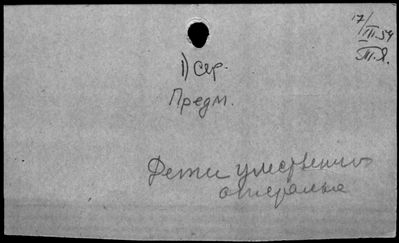 17/III.59
Ш.Я.
1) Сер.
Предм.
Дети умственно
отсталые